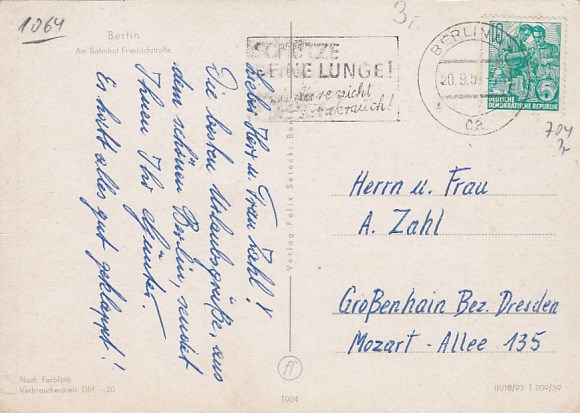 1064
Berlin
Am Bahnhof Friedrichstraße
3,-
SCHÜTZE
DEINE LUNGE!
nicht
BERLIN
20.9.
ca
10
5
DEUTSCHE
DEMOKRATISCHE REPUBLIK
704
Liebe Herr u. Frau Zahl!
Die besten Urlaubsgrüße, aus
dem schönen Berlin, sendet
Ihnen Ihr Günter.
Es hat alles gut geklappt!
Verlag Felix Setecki, Be
Herrn u. Frau
A. Zahl
Großenhain Bez. Dresden
Mozart-Allee 135
Nach Farbfoto
Verbraucherpreis DM -.20
1004
III/18/97 | 209/59